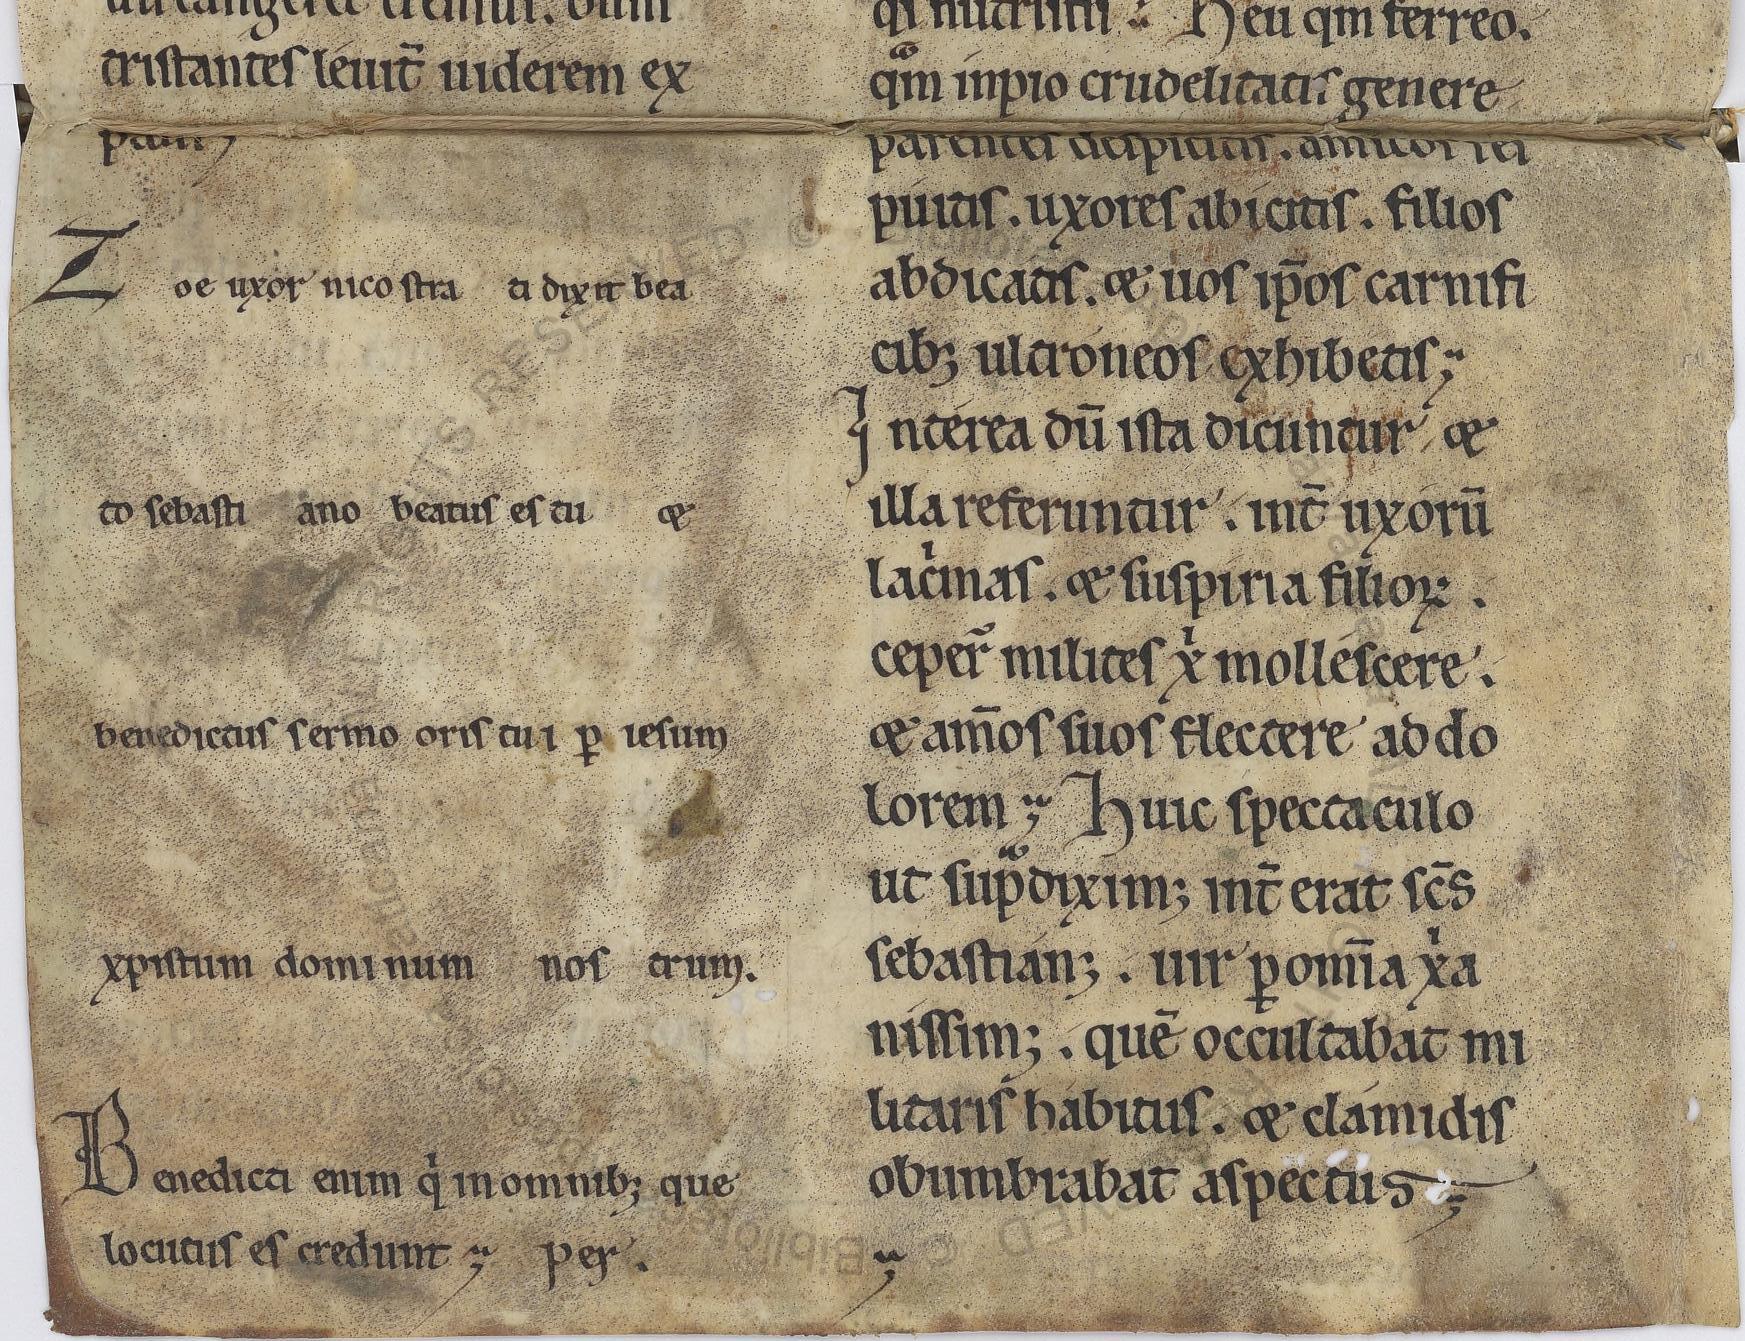 tristantes leuit̄ uiderem ex
Zoe uxor nicostra ti dixit bea
to sebasti ano beatus es tu &
benedictus sermo oris tui ꝑ iesum
xpistum dominum nos trum.
Benedicti enim qͥ in omnibꝫ que
locutus es credunt ; per .
qi nutristii ; Heu qm ferreo.
qᵃm inpio crudelitatis genere
parentes despicitis . amicos res
puitis . uxores abicitis . filios
abdicatis . & uos ip̄os carnifi
cibꝫ ultroneos exhibetis ;
Interea dū ista dicuntur &
illa referuntur . int̄ uxorū
lacͥmas . & suspiria filioꝝ .
ceper̄ milites xͥ mollescere .
& am̄os suos flectere ad do
lorem ; Huic spectaculo
ut supᵃdiximꝰ int̄ erat sc̄s
sebastianꝰ . uir ꝑ om̄ia xͥa
nissimꝰ . quē occultabat mi
litaris habitus . & clamidis
obumbrabat aspectus ;